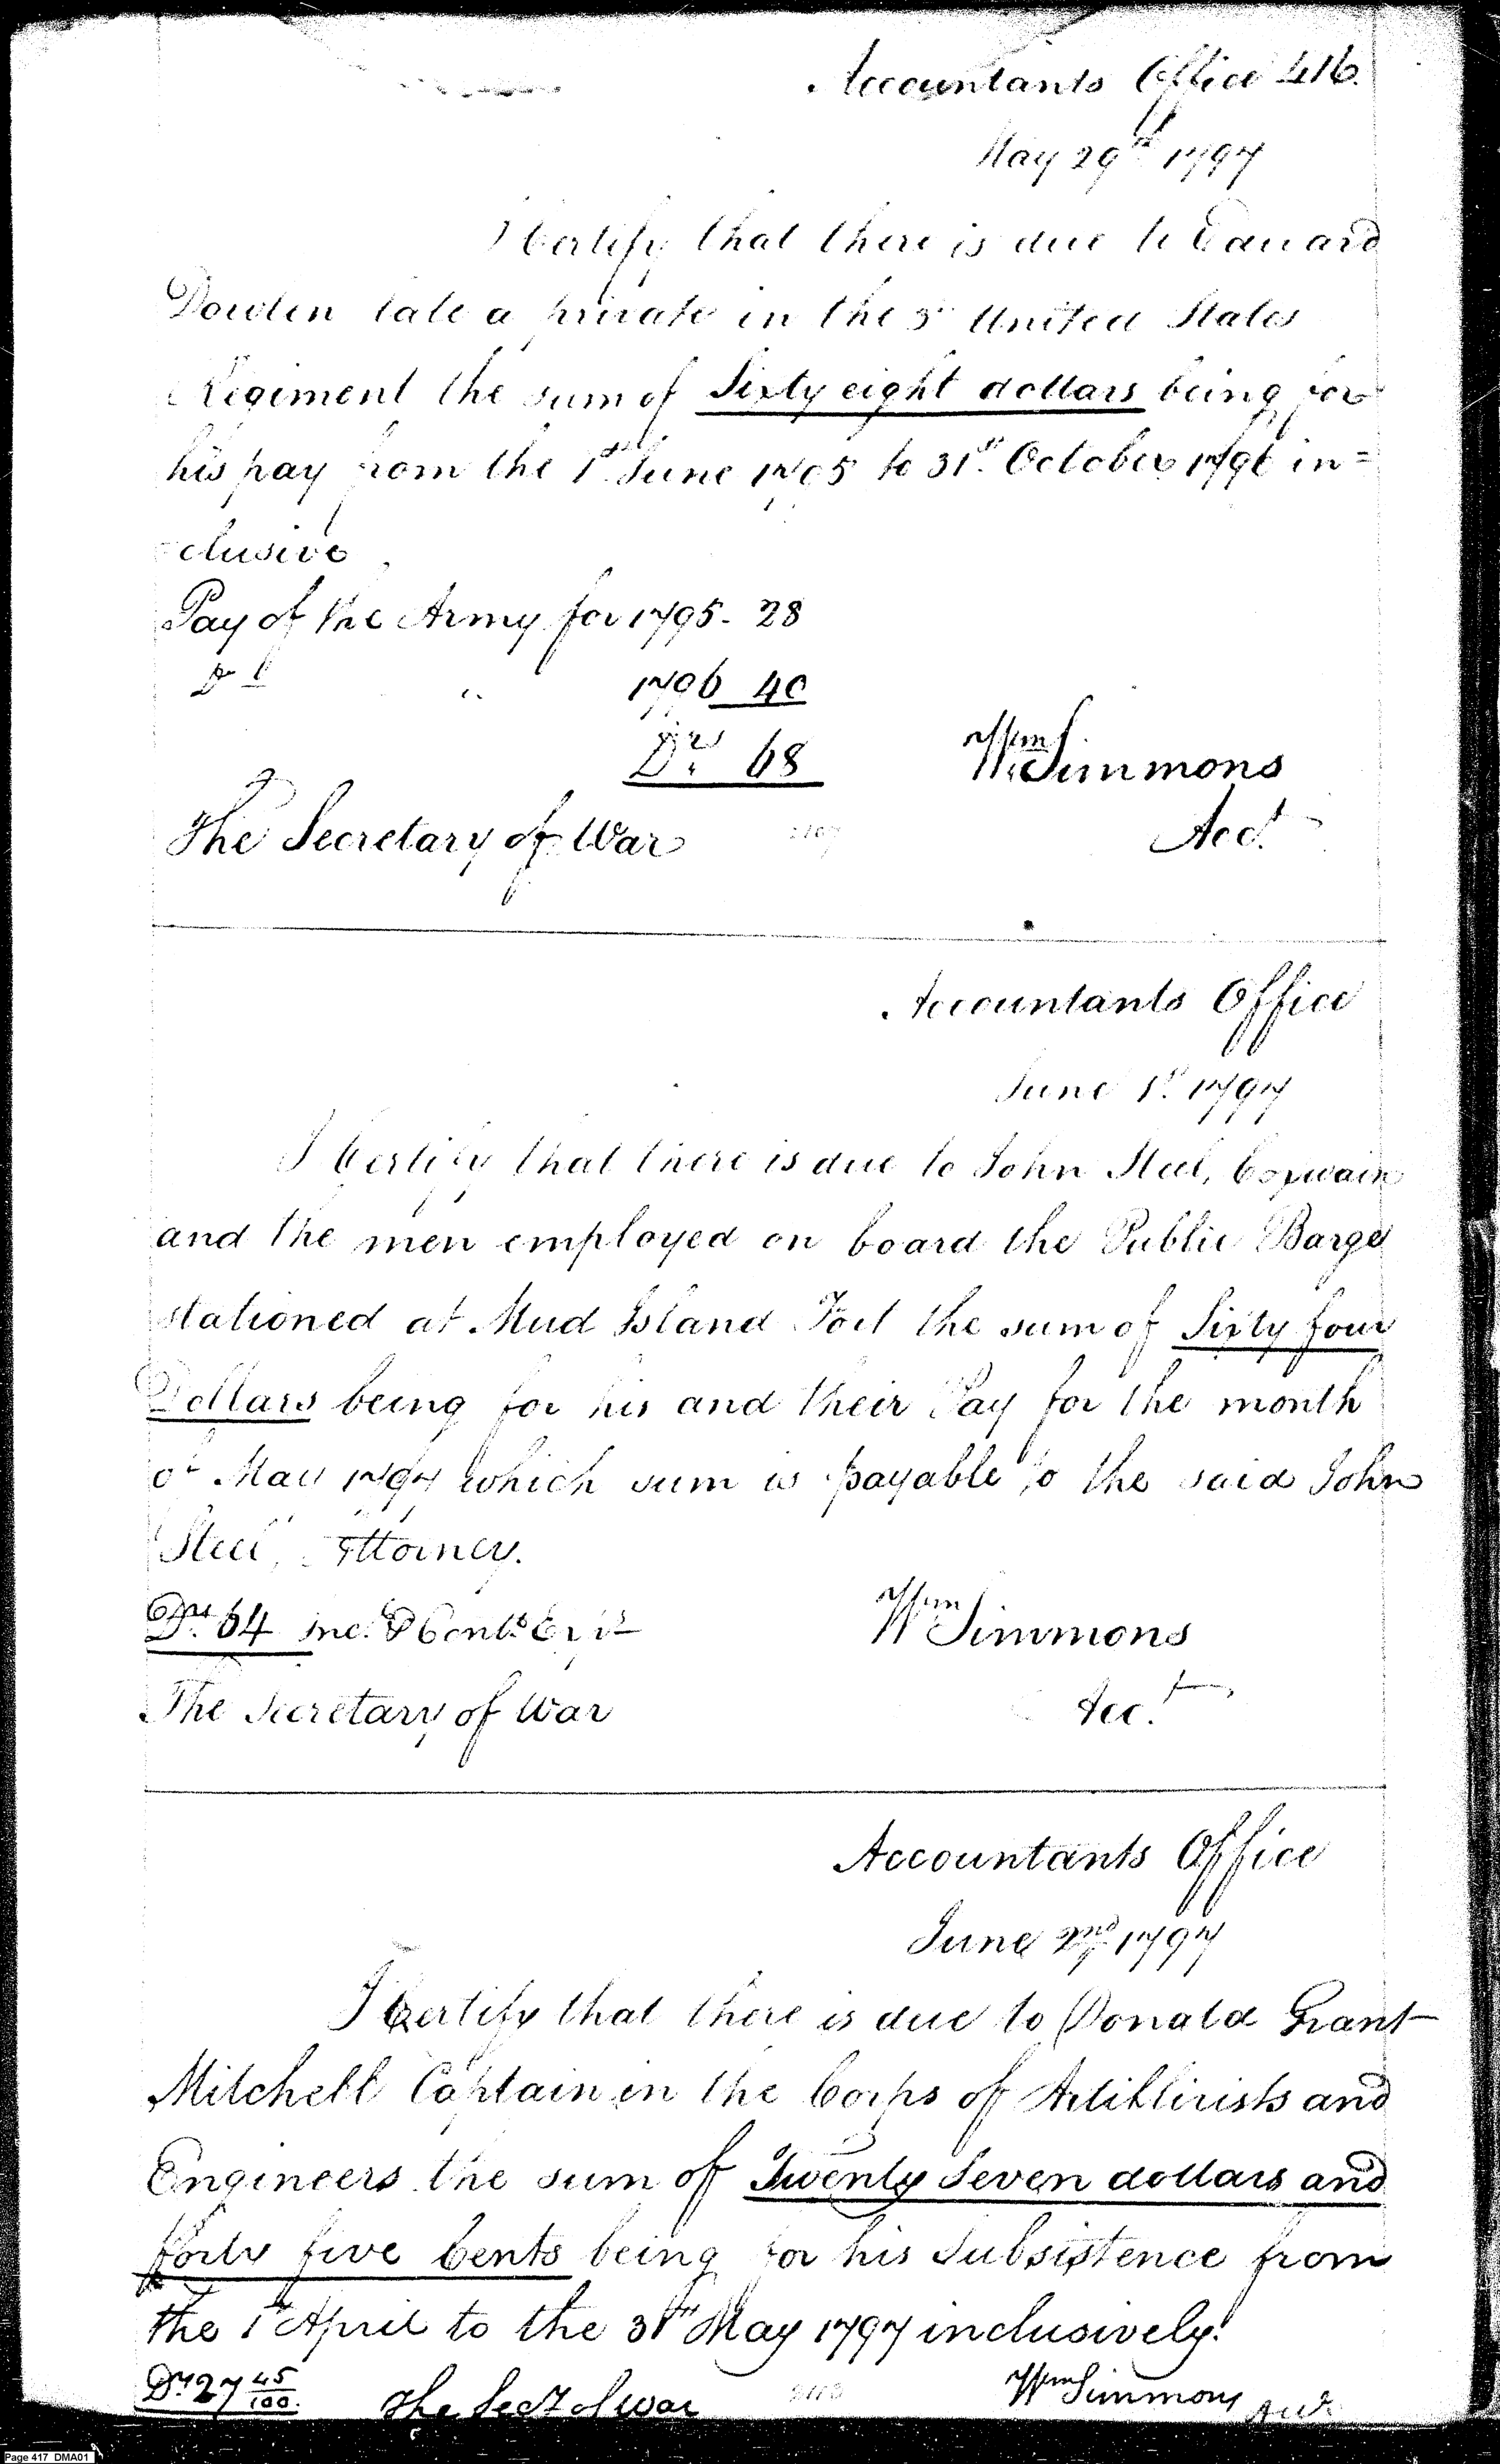 Accountants Office 416.
May 29th 1797
I Certify that there is due to Edward
Dowlen late a private in the 3d United States
Regiment the sum of Sixty eight dollars being for
his pay from the 1st June 1795 to 31st October 1796 in=
clusive
Pay of the Army for 1795. 28
Do " 1796 40
Drs 68 Wm Simmons
The Secretary of War Acct
Accountants Office
June 1st 1797
I Certify that there is due to John Steel, Coxwain
and the men employed on board the Public Barge
stationed at Mud Island Fort the sum of Sixty four
Dollars being for his and their Pay for the month
of May 1797 which sum is payable to the said John
Steel, Attorney.
Drs 64 Wm Simmons
The Secretary of War Acct
Accountants Office
June 2nd 1797
I Certify that there is due to Donald Grant
Mitchell Captain in the Corps of Artillirists and
Engineers the sum of Twenty Seven dollars and
forty five Cents being for his Subsistence from
the 1st April to the 31st May 1797 inclusively.
Drs 27 45/100. The Secy of War Wm Simmons Acct
Page 417 DMA01